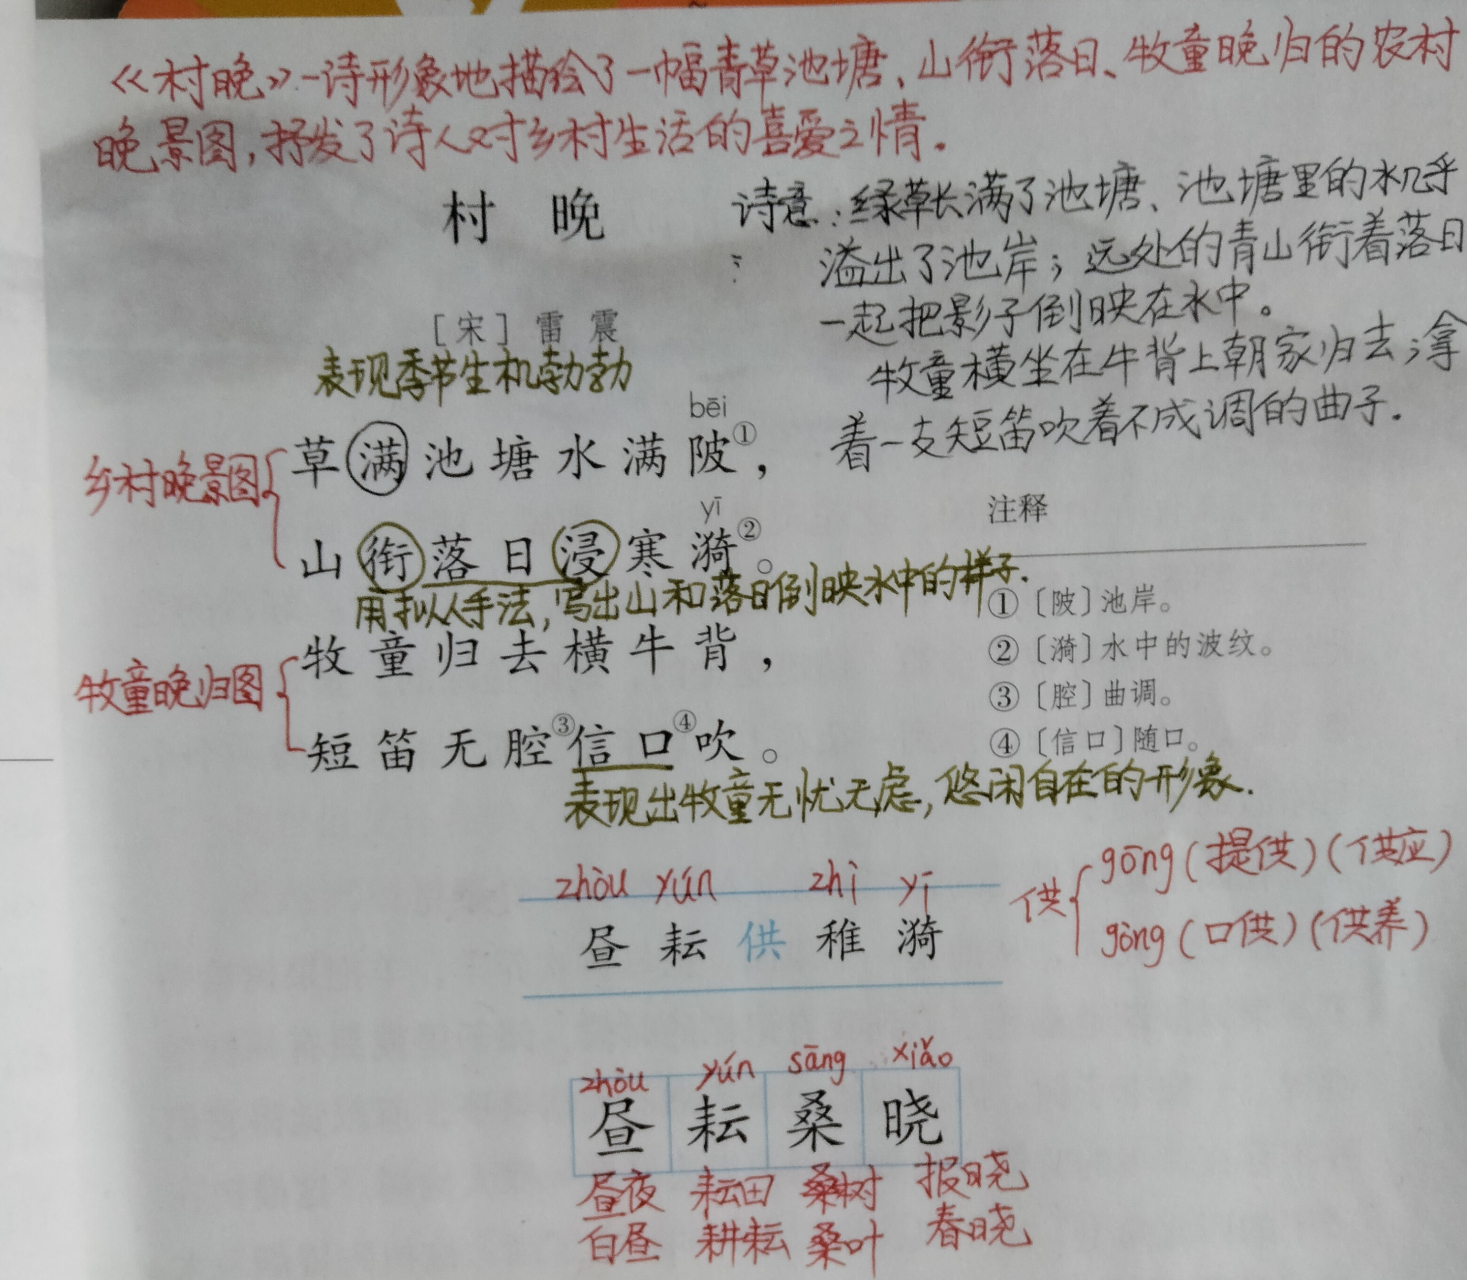 《村晚》一诗形象地描绘了一幅青草池塘、山衔落日、牧童晚归的农村
晚景图,抒发了诗人对乡村生活的喜爱之情。
村 晚
诗意:绿草长满了池塘、池塘里的水几乎
溢出了池岸;远处的青山衔着落日
一起把影子倒映在水中。
牧童横坐在牛背上朝家归去;拿
着一支短笛吹着不成调的曲子.
[宋] 雷 震
表现季节生机勃勃
bēi
草满池塘水满陂①,
乡村晚景图
yī
山衔落日浸寒漪②。
用拟人手法,写出山和落日倒映水中的样子.
牧童归去横牛背,
牧童晚归图
短笛无腔③信口④吹。
表现出牧童无忧无虑,悠闲自在的形象.
注释
①〔陂〕池岸。
②〔漪〕水中的波纹。
③〔腔〕曲调。
④〔信口〕随口。
zhòu yún zhì yī
昼 耘 供 稚 漪
供
gōng(提供)(供应)
gòng(口供)(供养)
zhòu yún sāng xiǎo
昼 耘 桑 晓
昼夜 耘田 桑树 报晓
白昼 耕耘 桑叶 春晓